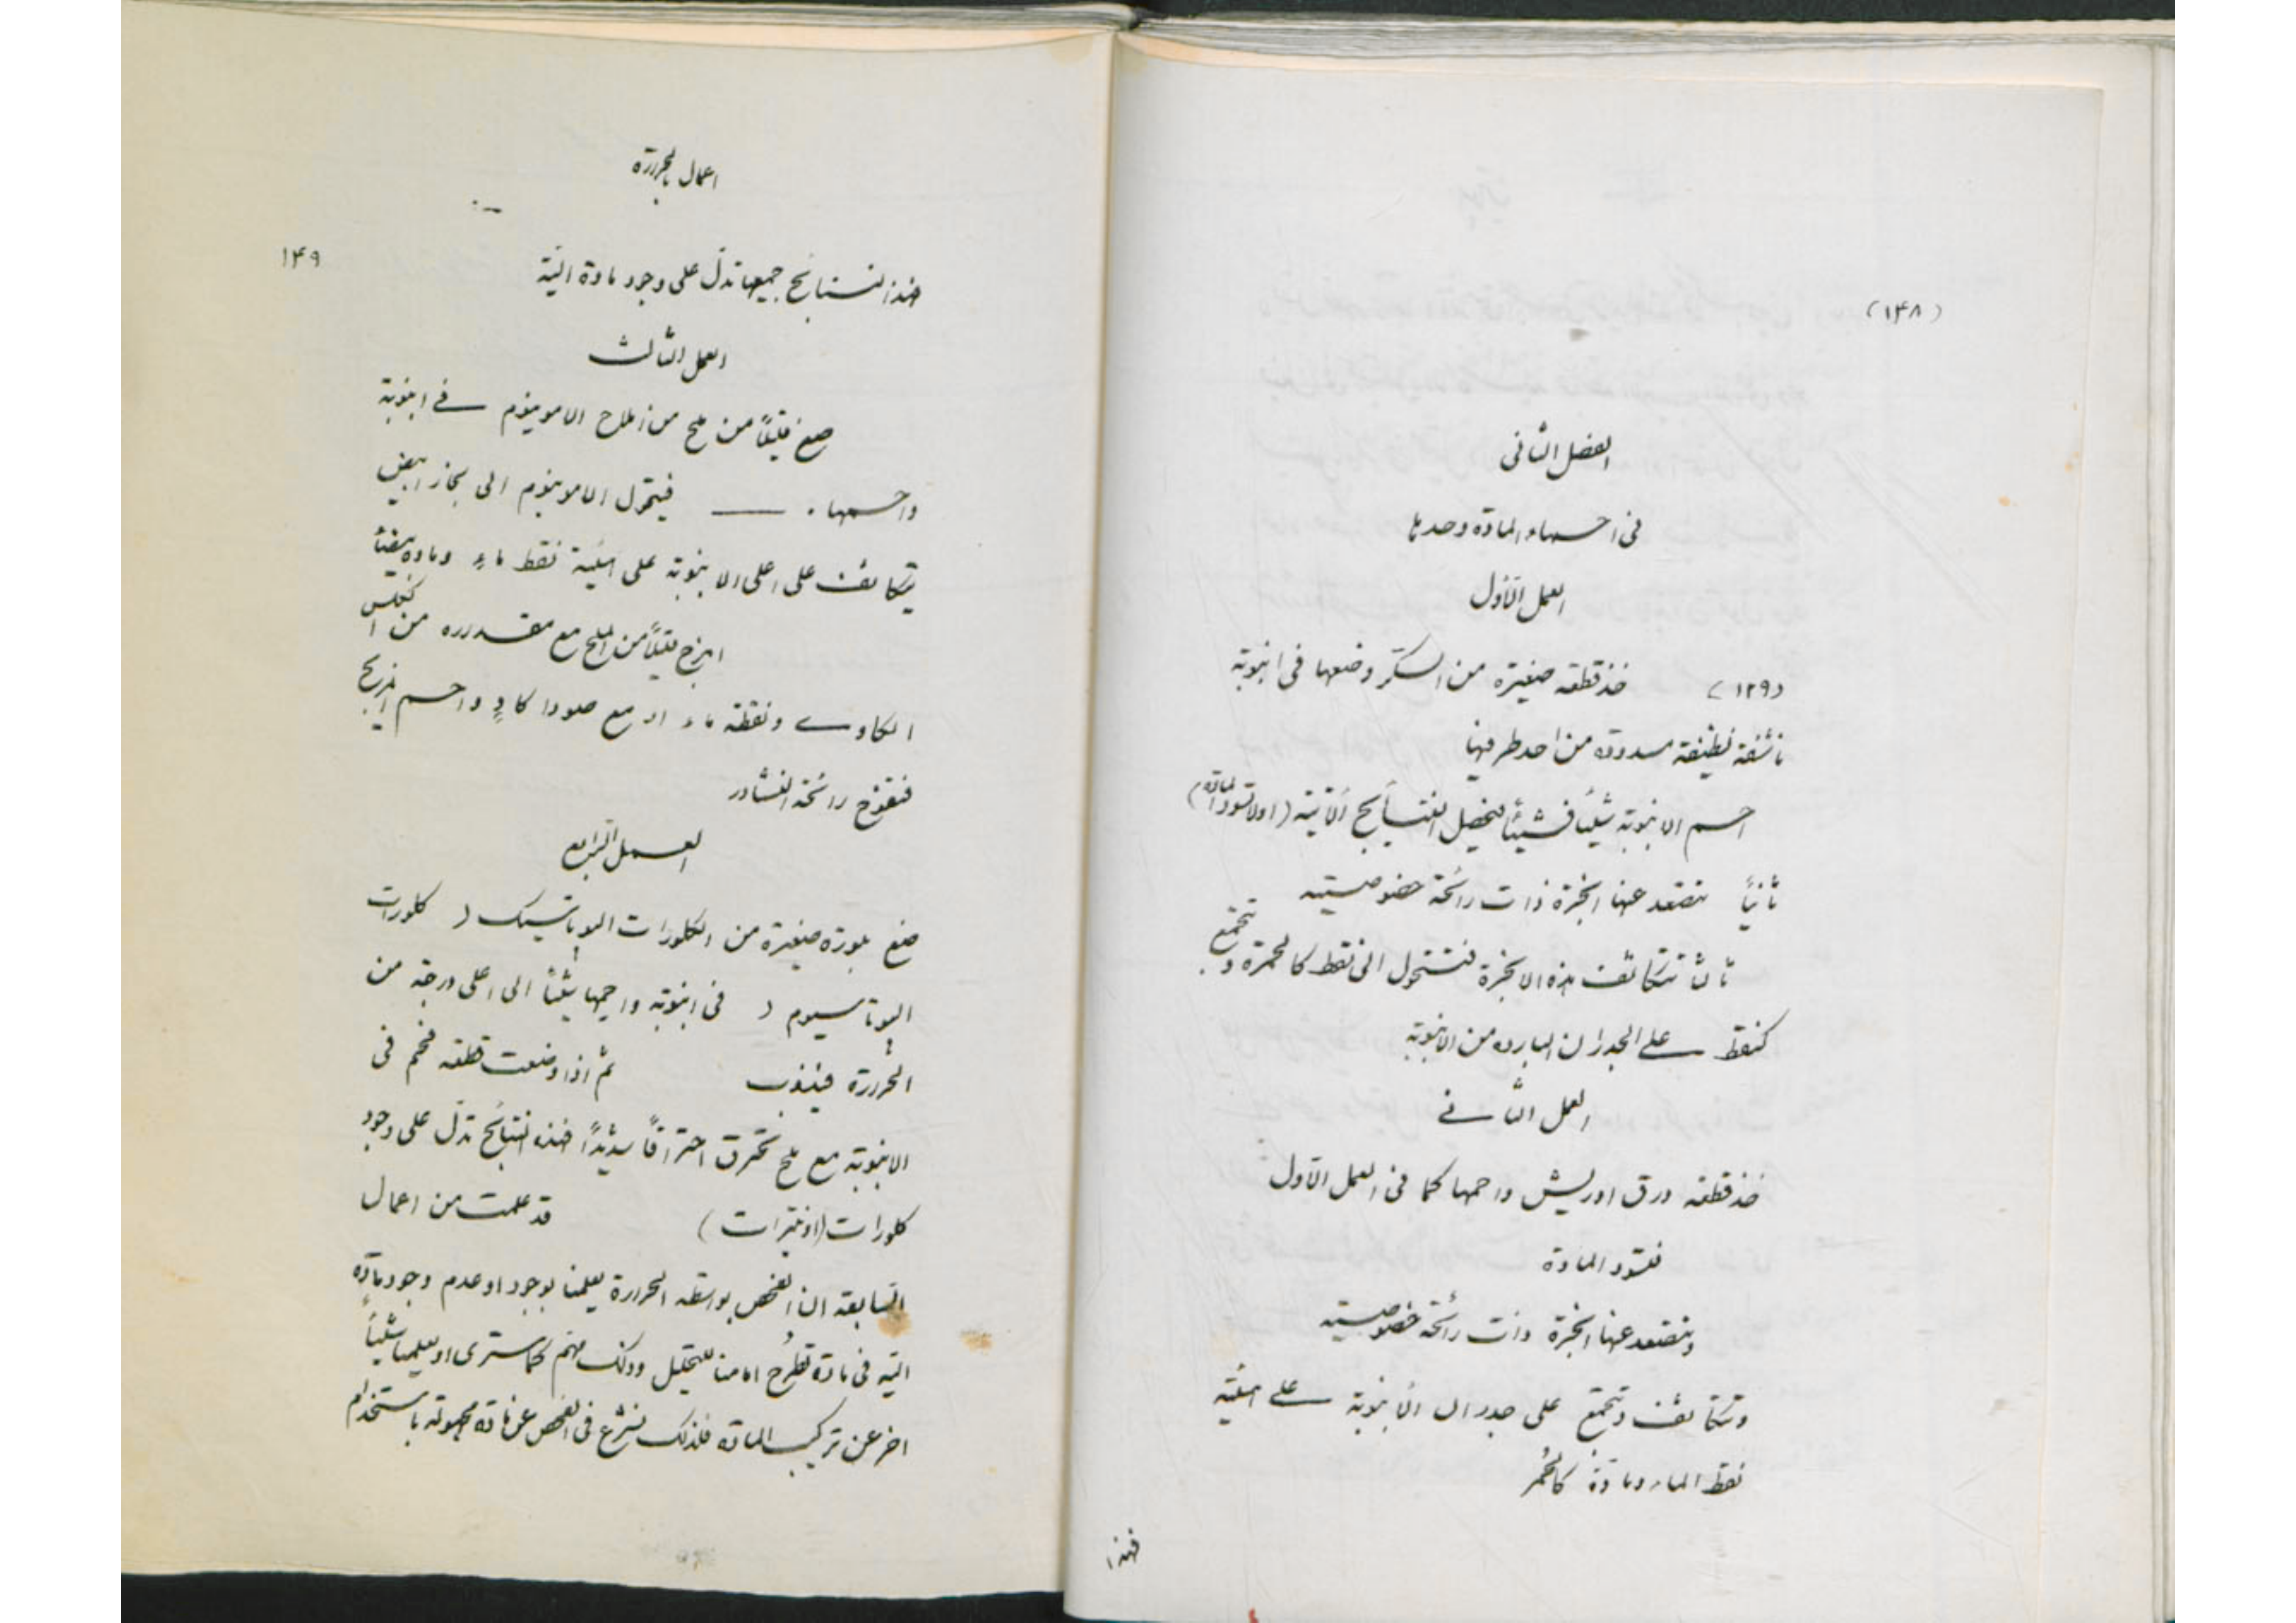 (١۴٨)
الفصل الثانى
فى احماء المادة وحدها
العمل الاول
(١٢٩) خذ قطعه صغيرة من السكر وضعها فى انبوبة
ناشفة نظيفة مسدوده من احد طرفيها
احم الانبوبة شيئاً فشيئاً فتحصل النتايج الآتية (اولا تسود المادة)
ثانياً تتصعد عنها ابخرة ذات رائحة خصوصية
ثالثا تتكاثف هذه الابخرة فتتحول الى نقط كالحمرة وتجتمع
كنقط على الجدران الباردة من الانبوبة
العمل الثانے
خذ قطعه ورق اوريش واحمها كما فى العمل الاول
فتسود المادة
وتتصعد عنها ابخرة ذات رائحة خصوصية
وتتكاثف وتجتمع على جدران الأنبوبة على هيئة
نقط الماء ومادة كالخمر
فهذا
اعمال بالحرارة
١۴٩
هذا النتائج جميعها تدل على وجود مادة آلية
العمل الثالث
ضع قليلاً من ملح من املاح الامونيوم فے انبوبة
واحمها. فيتحول الامونيوم الى بخار ابيض
يتكاثف على اعلى الانبوبة على هيئة نقط ماءٍ ومادة بيضاء
امزج قليلاً من الملح مع مقداره من الكلس
الكاوے ونقطة ماء او مع صودا كاوٍ واحم المزيج
فتفوح رائحة النشادر
العمل الرابع
ضع بلورة صغيرة من الكلورات البوتاسيك ( كلورات
البوتاسيوم ) فى انبوبة واحمها شيئاً الى اعلى درجة من
الحرارة فيذوب ثم اذا وضعت قطعه فحم فى
الانبوبة مع ملح تحترق احتراقاً شديداً هذه النتائج تدل على وجود
كلورات (او نيترات) قد علمت من اعمال
السابقة ان الفحص بواسطه الحرارة يعلمنا بوجود او عدم وجود مادّة
آليه فى مادة تطرح امامنا للتحليل وذلك مهم كما سترى او يعلمنا شيئاً
اخر عن تركيب المادة فلذلك نشرع فى الفحص عن مادة مجهولة باستخدام